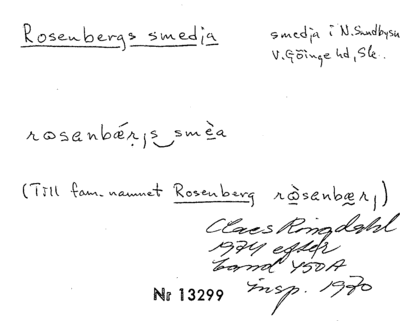 Rosenbergs smedja
smedja i N. Sandbysn
V. Göinge hd, Sk.
rosanbǽr̥ˌs‿smèa
(Till fam.namnet Rosenberg rò̱sanbær̥ˌ)
Claes Ringdahl
1974 efter
band 450A
insp. 1970
Nr 13299